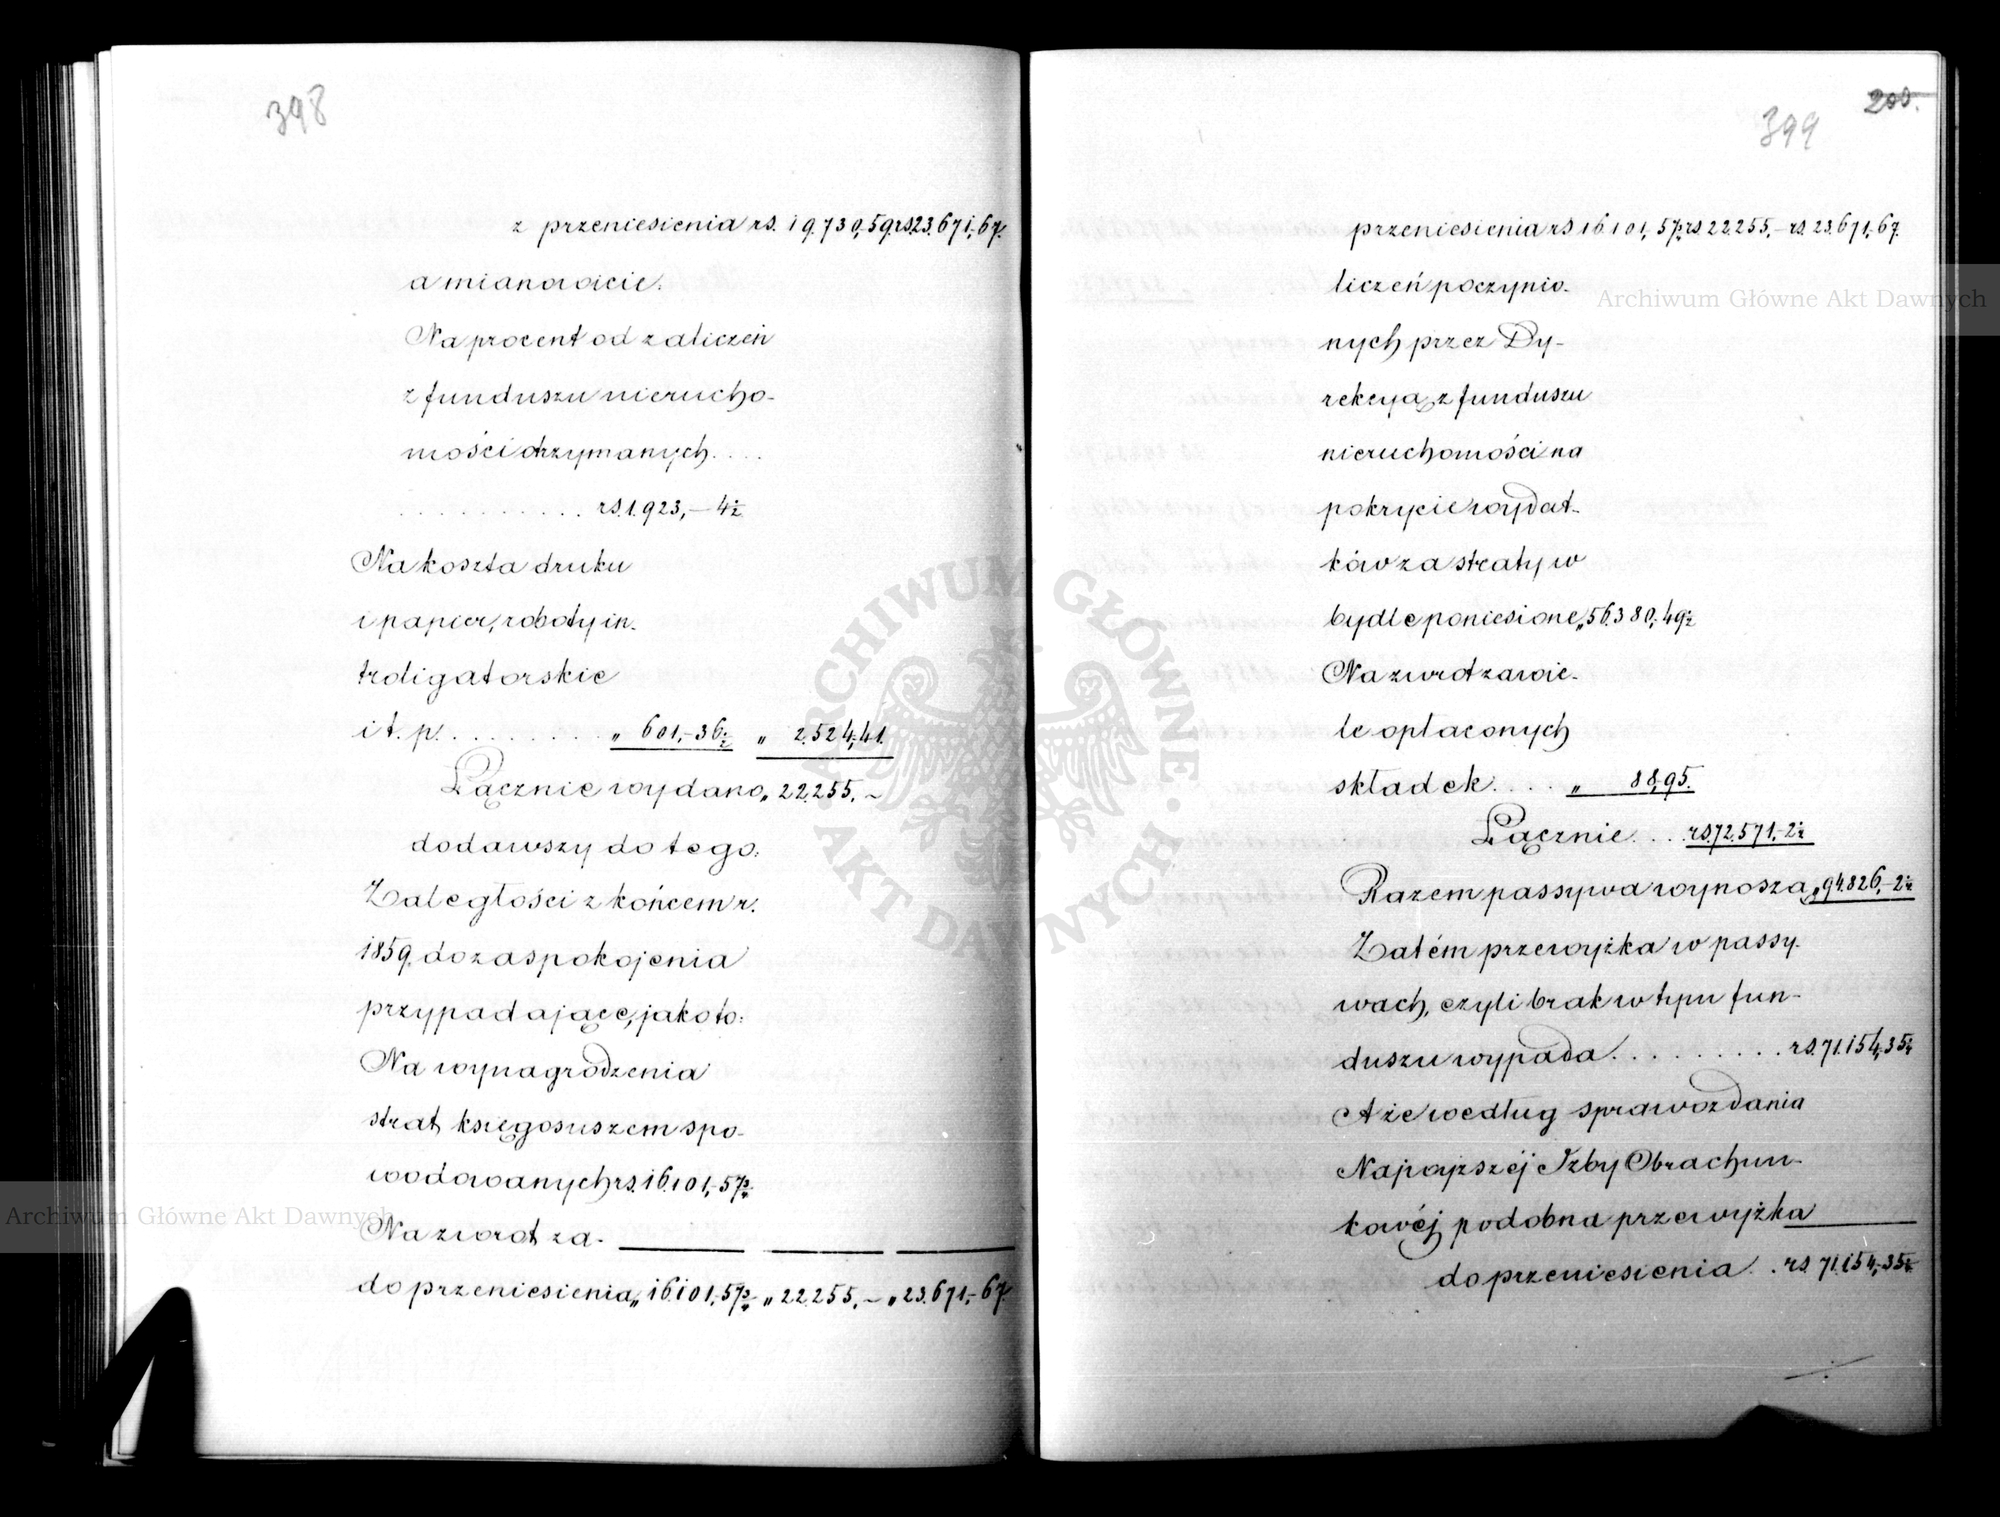 398
z przeniesienia rs. 19.730,59. rs. 23.671,-67.
a mianowicie:
Na procent od zaliczeń
z funduszu nierucho-
mości otrzymanych. . . .
. . . . . . . . . . rs. 1.923,-4½
Na koszta druku
i papier, roboty in-
troligatorskie
i t. p. . . . . . . . . „ 601,-36½ „ 2.524,41.
Łącznie wydano „ 22.255,-
dodawszy do tego:
Zaległości z końcem r.
1859. do zaspokojenia
przypadające, jakoto:
Na wynagrodzenia
strat księgosuszem spo-
wodowanych rs. 16.101,-57¾
Na zwrot za-
do przeniesienia „ 16.101,57¾ „ 22.255,- „ 23.671,-67.
200.
399
przeniesienia rs 16.101,57¾ rs 22.255,- rs. 23.671,-67.
liczeń poczynio-
nych przez Dy-
rekcyą z funduszu
nieruchomości na
pokrycie wydat-
ków za straty w
bydle poniesione „ 56.380,-49½
Na zwrot zawie-
le opłaconych
składek. . . . „ 88,95.
Łącznie. . . rs. 72.571,-2¼
Razem passywa wynoszą „ 94.826,-2¼
Zatém przewyżka w passy-
wach, czyli brak w tym fun-
duszu wypada. . . . . . . . . rs. 71.154,-35¼
A że według sprawozdania
Najwyższéj Izby Obrachun-
kowéj podobna przewyżka
do przeniesienia . . rs. 71.154,-35¼
Archiwum Główne Akt Dawnych
Archiwum Główne Akt Dawnych
ARCHIWUM GŁÓWNE AKT DAWNYCH